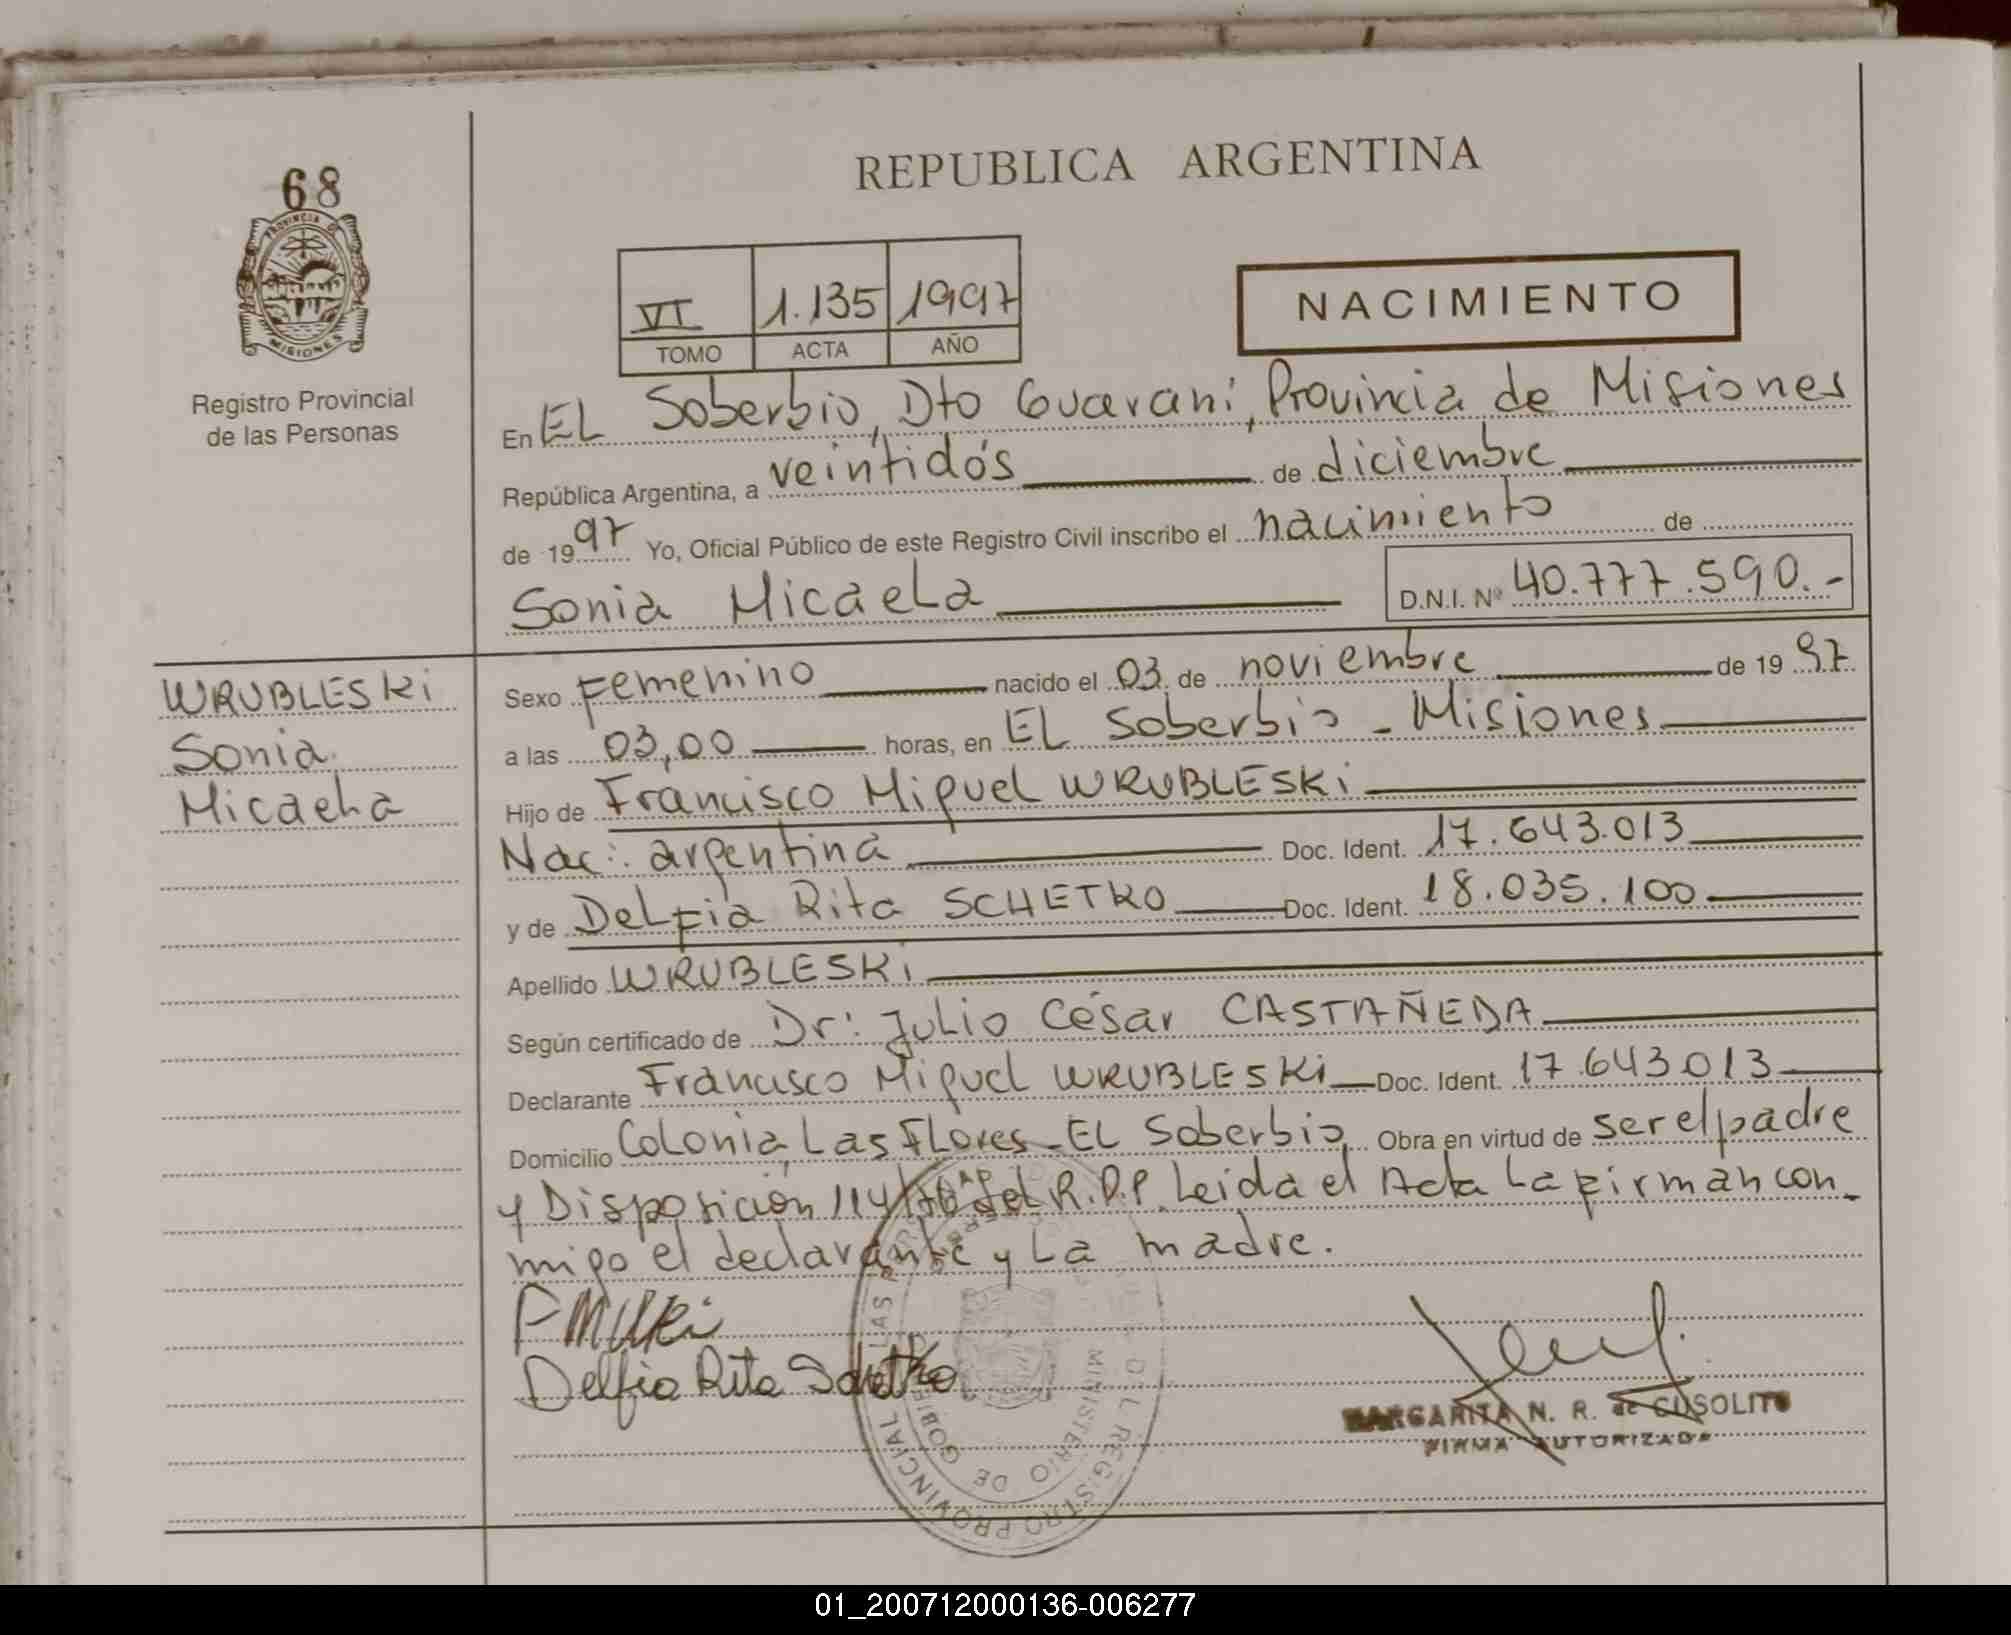 68
PROVINCIA DE
MISIONES
Registro Provincial
de las Personas
REPUBLICA ARGENTINA
VI 1.135 1997
TOMO ACTA AÑO
NACIMIENTO
En EL Soberbio, Dto Guaraní, Provincia de Misiones
República Argentina, a veintidós de diciembre
de 1997 Yo, Oficial Público de este Registro Civil inscribo el nacimiento de
Sonia Micaela D.N.I. Nº 40.777.590.-
WRUBLESKi
Sonia
Micaela
Sexo Femenino nacido el 03 de noviembre de 1997
a las 03,00 horas, en EL Soberbio - Misiones
Hijo de Francisco Miguel WRUBLESKi
Nac: argentina Doc. Ident. 17.643.013
y de Delfia Rita SCHETKO Doc. Ident. 18.035.100
Apellido WRUBLESKi
Según certificado de Dr: Julio César CASTAÑEDA
Declarante Francisco Miguel WRUBLESKi Doc. Ident. 17.643.013
Domicilio Colonia Las Flores - EL Soberbio Obra en virtud de ser el padre
y Disposición 114/ del R.P.P. Leida el Acta La firman con-
migo el declarante y La madre.
Delfia Rita Schetko
MARGARITA N. R. de CUSOLITO
FIRMA AUTORIZADA
REGISTRO PROVINCIAL LAS
MINISTERIO DE GOBIERNO
01_200712000136-006277